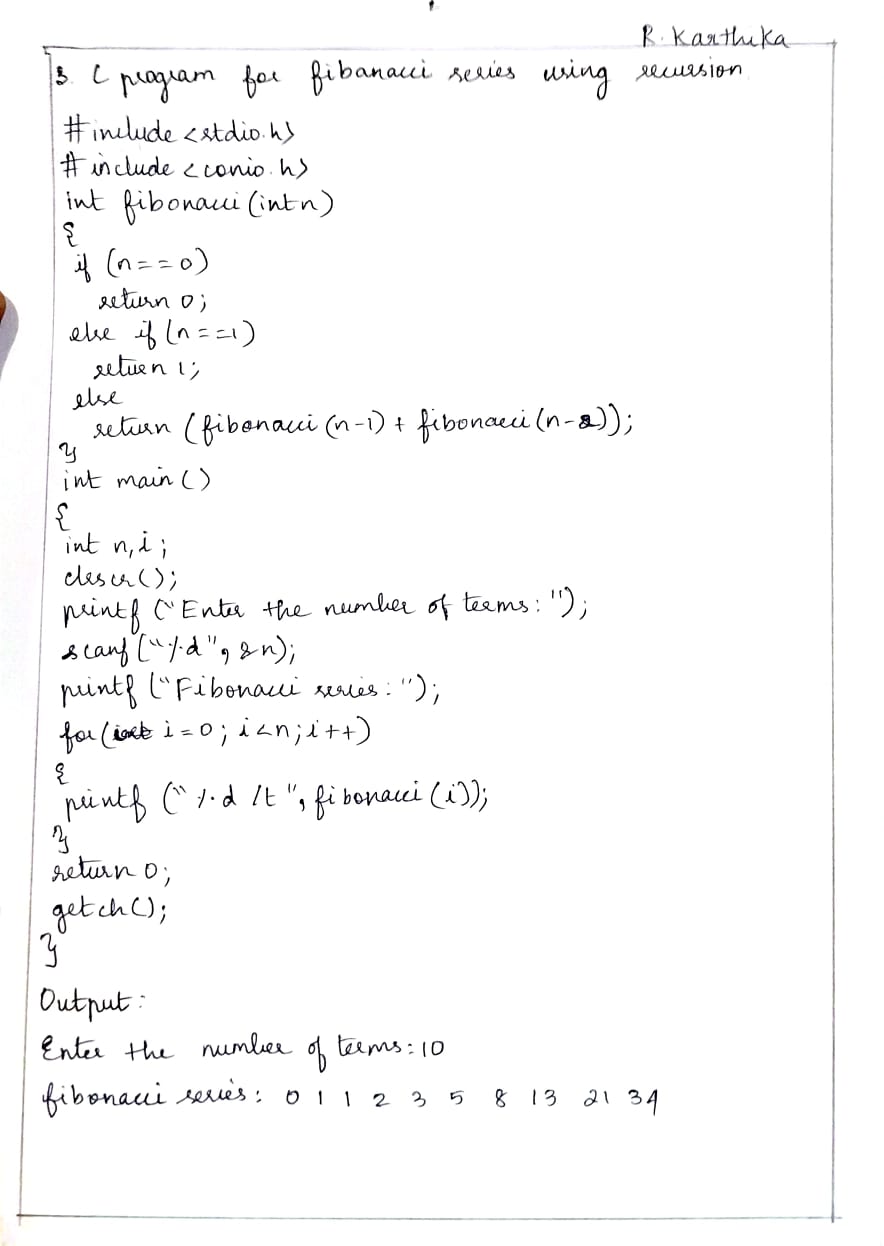 R. Karthika
3. C program for fibanacci series using recursion
#include <stdio.h>
#include <conio.h>
int fibonacci (int n)
{
if (n==0)
return 0;
else if (n==1)
return 1;
else
return (fibonacci (n-1) + fibonacci (n-2));
}
int main ()
{
int n, i;
clrscr();
printf ("Enter the number of terms: ");
scanf ("%d", &n);
printf ("Fibonacci series: ");
for ( i = 0; i<n; i++)
{
printf ("%d /t ", fibonacci (i));
}
return 0;
getch();
}
Output:
Enter the number of terms: 10
fibonacci series: 0 1 1 2 3 5 8 13 21 34